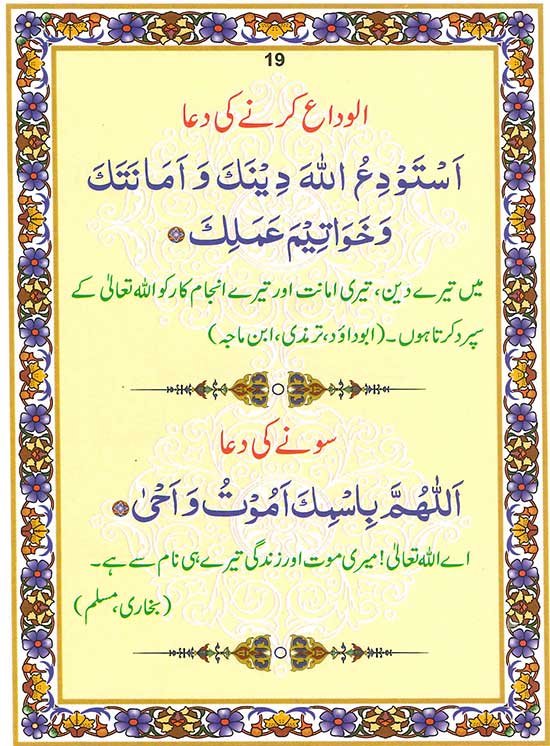 19
الوداع کرنے کی دعا
اَسْتَوْدِعُ اللهَ دِيْنَكَ وَ اَمَانَتَكَ
وَ خَوَاتِيْمَ عَمَلِكَ
میں تیرے دین، تیری امانت اور تیرے انجام کار کو اللہ تعالیٰ کے
سپرد کرتا ہوں۔ (ابوداؤد، ترمذی، ابن ماجہ)
سونے کی دعا
اَللّٰهُمَّ بِاسْمِكَ اَمُوْتُ وَ اَحْىٰ
اے اللہ تعالیٰ! میری موت اور زندگی تیرے ہی نام سے ہے۔
(بخاری، مسلم)